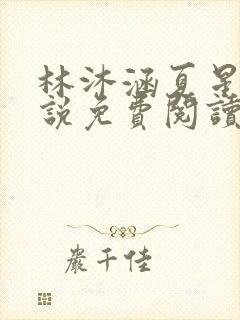 林沐涵夏星
說免費閱讀
嚴千佳